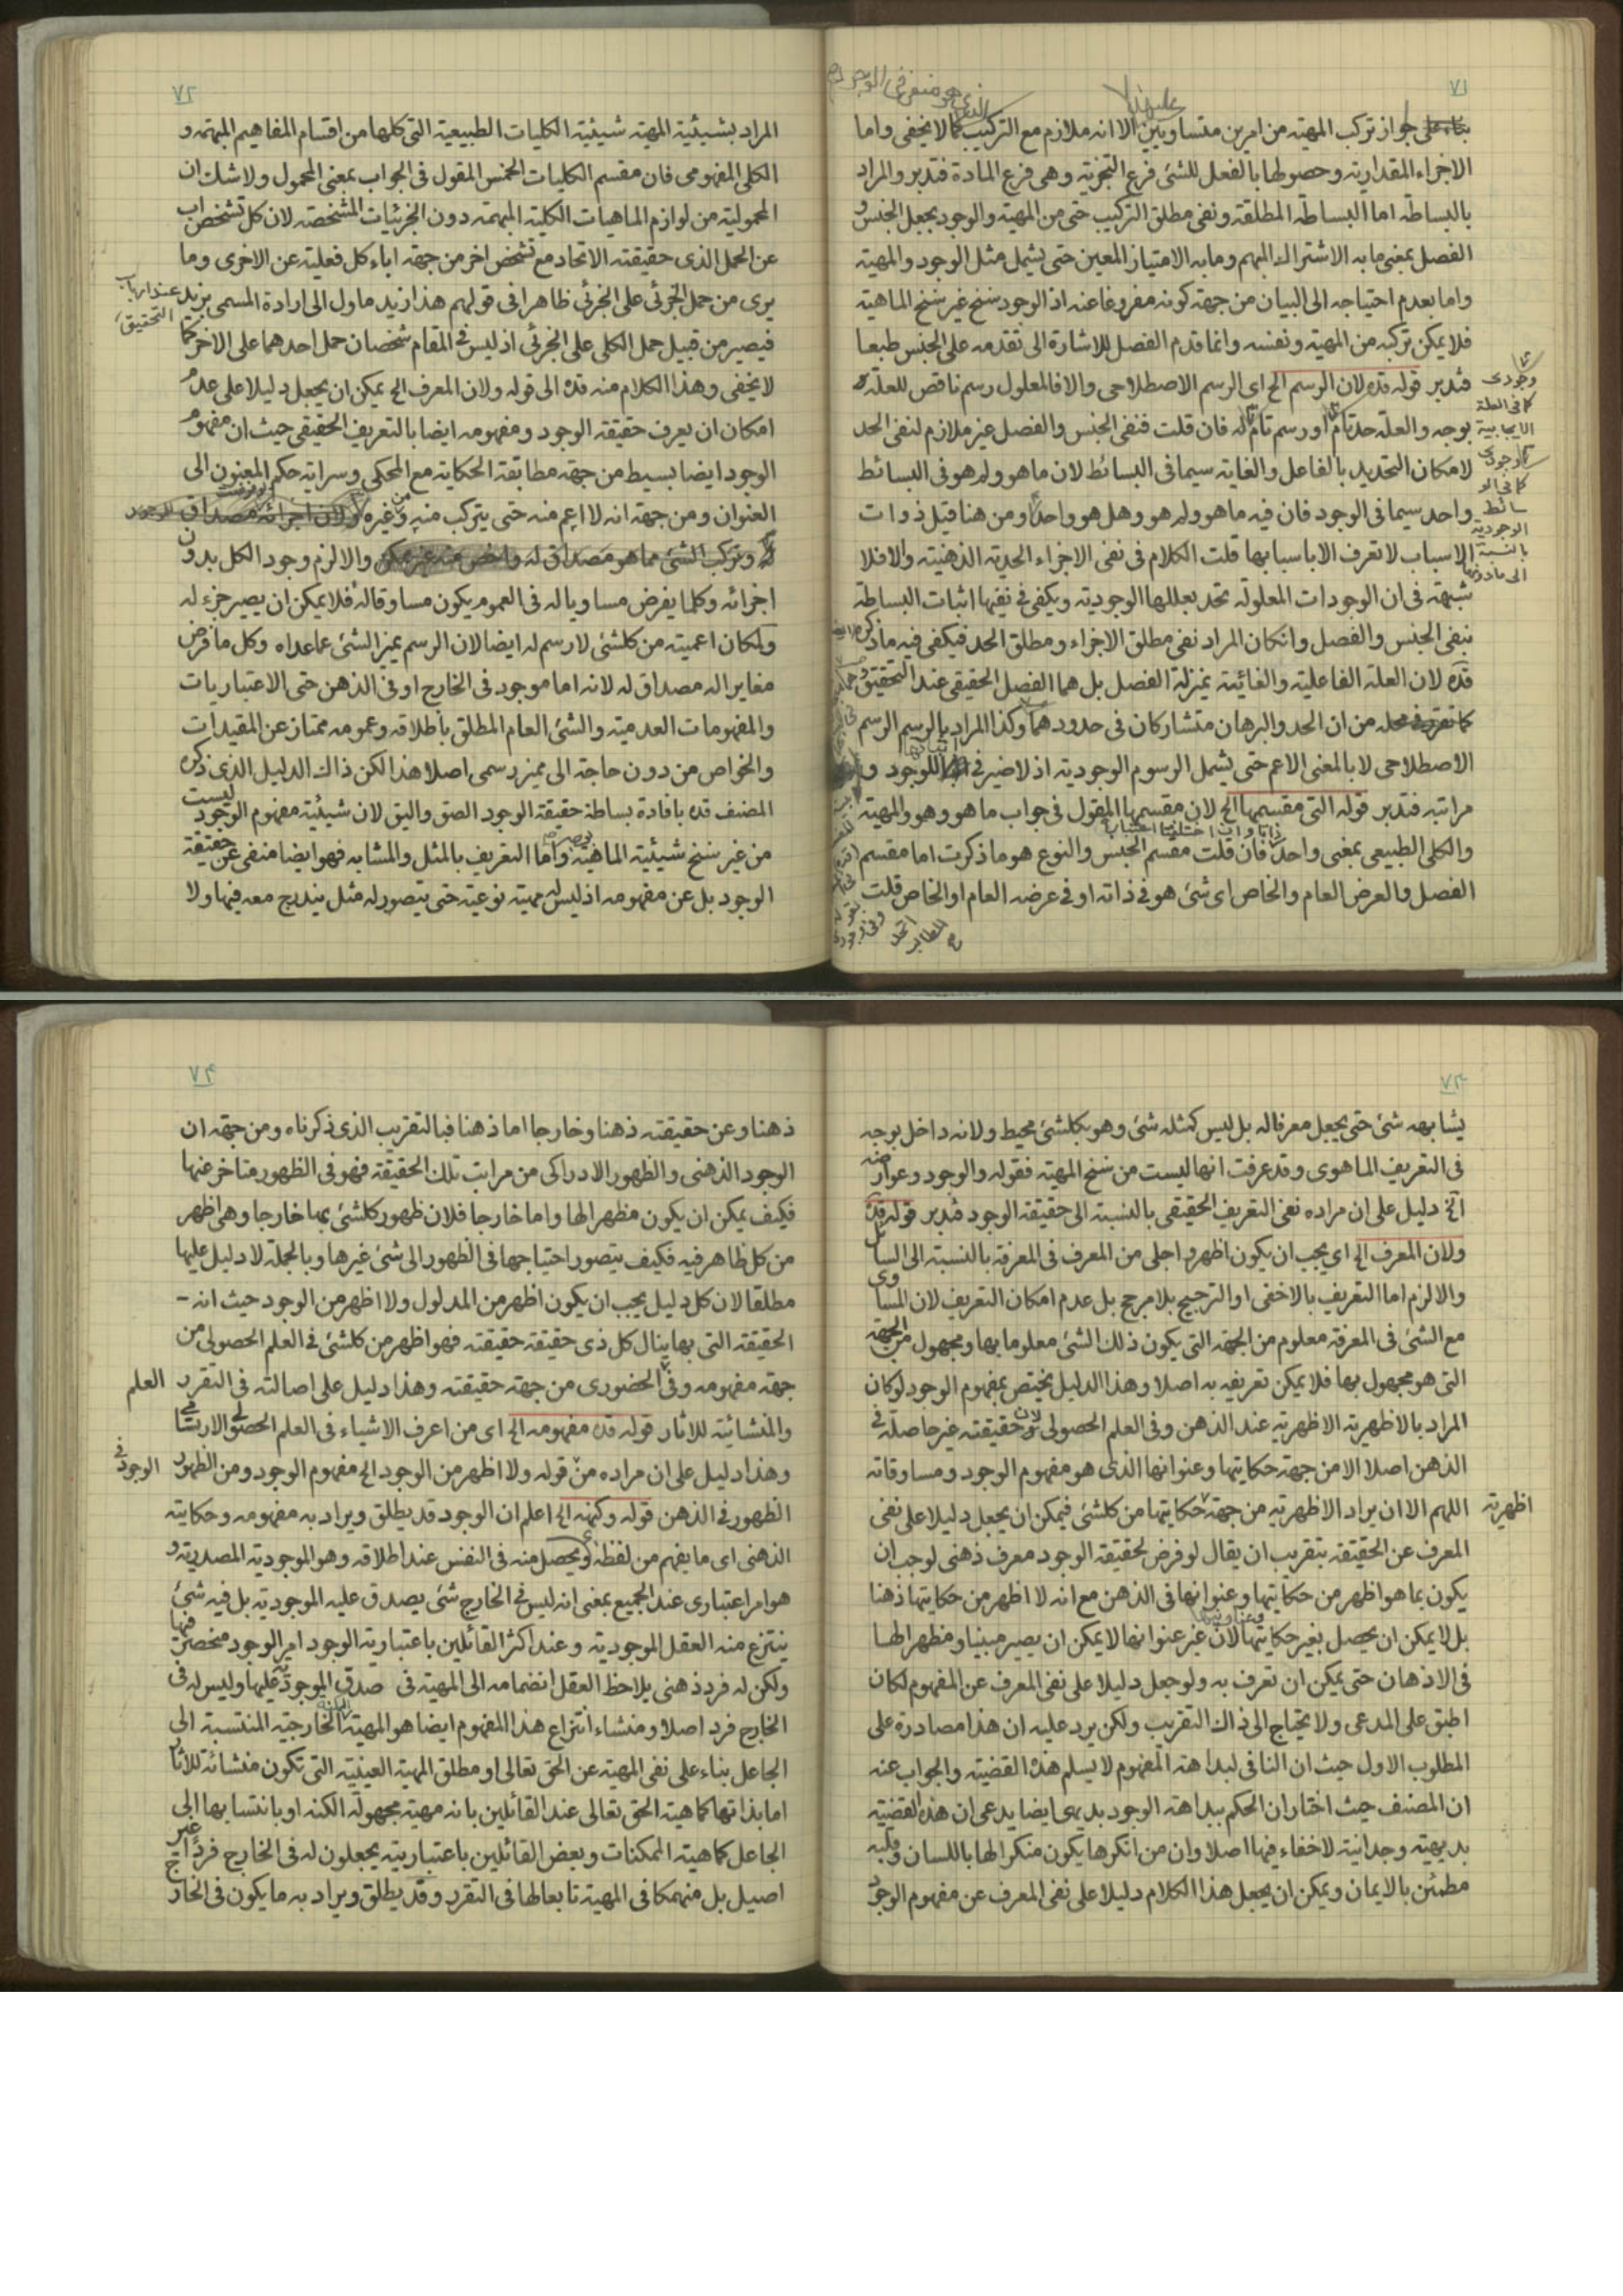 ٧١
بناء على جواز تركب المهية من امرين متساويين الا انه ملازم مع التركيب كما لا يخفى واما
الاجزاء المقدارية وحصولها بالفعل للشئ فرع التجزية وهى فرع المادة فتدبر والمراد
بالبساطة اما البساطة المطلقة ونفى مطلق التركيب حتى من المهية والوجود بجعل الجنس و
الفصل بمعنى ما به الاشتراك المبهم وما به الامتياز المعين حتى يشمل مثل الوجود والمهية
واما بعدم احتياجه الى البيان من جهة كونه مفروغا عنه اذ الوجود سنخ غير سنخ الماهية
فلا يمكن تركبه من المهية ونفسه وانما قدم الفصل للاشارة الى تقدمه على الجنس طبعا
فتدبر قوله قده لان الرسم الخ اى الرسم الاصطلاحى والا فالمعلول رسم ناقص للعلة
بوجه والعلة حد تام او رسم تام له فان قلت فنفى الجنس والفصل غير ملازم لنفى الحد
لامكان التحديد بالفاعل والغاية سيما فى البسائط لان ما هو ولم هو فى البسائط
واحد سيما فى الوجود فان فيه ما هو ولم هو وهل هو واحد ومن هنا قيل ذوات
الاسباب لا تعرف الا باسبابها قلت الكلام فى نفى الاجزاء الحدية الذهنية والا فلا
شبهة فى ان الوجودات المعلولة تحد بعللها الوجودية ويكفى فى نفيها اثبات البساطة
بنفى الجنس والفصل وانكان المراد نفى مطلق الاجزاء ومطلق الحد فيكفى فيه ما ذكره
قده لان العلة الفاعلية والغائية بمنزلة الفصل بل هما الفصل الحقيقى عند التحقيق
كما تقرر فى محله من ان الحد والبرهان متشاركان فى حدودهما وكذا المراد بالرسم الرسم
الاصطلاحى لا بالمعنى الاعم حتى يشمل الرسوم الوجودية اذ لا ضير فى للوجود و
مراتبه فتدبر قوله التى مقسمها الخ لان مقسمها المقول فى جواب ما هو وهو والمهية
والكلى الطبيعى بمعنى واحد فان قلت مقسم الجنس والنوع هو ما ذكرت اما مقسم
الفصل والعرض العام والخاص اى شئ هو فى ذاته او فى عرضه العام او الخاص قلت
وجودى
كما فى العلة
الايجابية
الوجودية
بالنسبة
الى ما دونها
٧٢
المراد بشيئية المهية شيئية الكليات الطبيعية التى كلها من اقسام المفاهيم المبهمة و
الكلى المفهومى فان مقسم الكليات الخمس المقول فى الجواب بمعنى المحمول ولا شك ان
المحمولية من لوازم الماهيات الكلية المبهمة دون الجزئيات المشخصة لان كل تشخص اب
عن الحمل الذى حقيقته الاتحاد مع تشخص اخر من جهة اباء كل فعلية عن الاخرى وما
يرى من حمل الجزئى على الجزئى ظاهرا فى قولهم هذا زيد ماول الى ارادة المسمى بزيد عند ارباب التحقيق
فيصير من قبيل حمل الكلى على الجزئى اذ ليس فى المقام شخصان حمل احدهما على الاخر كما
لا يخفى وهذا الكلام منه قده الى قوله ولان المعرف الخ يمكن ان يجعل دليلا على عدم
امكان ان يعرف حقيقة الوجود ومفهومه ايضا بالتعريف الحقيقى حيث ان مفهوم
الوجود ايضا بسيط من جهة مطابقة الحكاية مع المحكى وسراية حكم المعنون الى
العنوان ومن جهة انه لا اعم منه حتى يتركب منه ومن غيره
والا لزم وجود الكل بدون
اجزائه وكلما يفرض مساويا له فى العموم يكون مساوقا له فلا يمكن ان يصير جزء له
ولمكان اعميته من كلشئ لا رسم له ايضا لان الرسم يميز الشئ عما عداه وكل ما فرض
مغايرا له مصداق له لانه اما موجود فى الخارج او فى الذهن حتى الاعتباريات
والمفهومات العدمية والشئ العام المطلق باطلاقه وعمومه ممتاز عن المقيدات
والخواص من دون حاجة الى مميز رسمى اصلا هذا لكن ذاك الدليل الذى ذكره
المصنف قده بافادة بساطة حقيقة الوجود الصق واليق لان شيئية مفهوم الوجود ليست
من غير سنخ شيئية الماهية واما التعريف بالمثل والمشابه فهو ايضا منفى عن حقيقة
الوجود بل عن مفهومه اذ ليس له مهية نوعية حتى يتصور له مثل يندرج معه فيها ولا
٧٣
يشابهه شئ حتى يجعل معرفا له بل ليس كمثله شئ وهو بكلشئ محيط ولانه داخل بوجه
فى التعريف الماهوى وقد عرفت انها ليست من سنخ المهية فقوله والوجود وعوارضه
الخ دليل على ان مراده نفى التعريف الحقيقى بالنسبة الى حقيقة الوجود فتدبر قوله قده
ولان المعرف الخ اى يجب ان يكون اظهر واجلى من المعرف فى المعرفة بالنسبة الى السائل
والا لزم اما التعريف بالاخفى او الترجيح بلا مرجح بل عدم امكان التعريف لان المساوى
مع الشئ فى المعرفة معلوم من الجهة التى يكون ذلك الشئ معلوما بها ومجهول من الجهة
التى هو مجهول بها فلا يمكن تعريفه به اصلا وهذا الدليل يختص بمفهوم الوجود لو كان
المراد بالاظهرية الاظهرية عند الذهن وفى العلم الحصولى لان حقيقته غير حاصلة فى
الذهن اصلا الا من جهة حكايتها وعنوانها الذى هو مفهوم الوجود ومساوقاته
اللهم الا ان يراد الاظهرية من جهة اظهرية حكايتها من كلشئ فيمكن ان يجعل دليلا على نفى
المعرف عن الحقيقة بتقريب ان يقال لو فرض لحقيقة الوجود معرف ذهنى لوجب ان
يكون بما هو اظهر من حكايتها وعنوانها فى الذهن مع انه لا اظهر من حكايتها ذهنا
بل لا يمكن ان يحصل بغير حكايتها لان غير عنوانها لا يمكن ان يصير مبينا ومظهرا لها
فى الاذهان حتى يمكن ان تعرف به ولو جعل دليلا على نفى المعرف عن المفهوم لكان
اطبق على المدعى ولا يحتاج الى ذاك التقريب ولكن يرد عليه ان هذا مصادرة على
المطلوب الاول حيث ان النافى لبداهة المفهوم لا يسلم هذه القضية والجواب عنه
ان المصنف حيث اختار ان الحكم ببداهة الوجود بديهى ايضا يدعى ان هذه القضية
بديهية وجدانية لا خفاء فيها اصلا وان من انكرها يكون منكرا لها باللسان وقلبه
مطمئن بالايمان ويمكن ان يجعل هذا الكلام دليلا على نفى المعرف عن مفهوم الوجود
٧٤
ذهنا وعن حقيقته ذهنا وخارجا اما ذهنا فبالتقريب الذى ذكرناه ومن جهة ان
الوجود الذهنى والظهور الادراكى من مراتب تلك الحقيقة فهو فى الظهور متاخر عنها
فكيف يمكن ان يكون مظهرا لها واما خارجا فلان ظهور كلشئ بها خارجا وهى اظهر
من كل ظاهر فيه فكيف يتصور احتياجها فى الظهور الى شئ غيرها وبالجملة لا دليل عليها
مطلقا لان كل دليل يجب ان يكون اظهر من المدلول ولا اظهر من الوجود حيث انه -
الحقيقة التى بها ينال كل ذى حقيقة حقيقته فهو اظهر من كلشئ فى العلم الحصولى من
جهة مفهومه وفى العلم الحضورى من جهة حقيقته وهذا دليل على اصالته فى التقرر
والمنشائية للاثار قوله قده مفهومه الخ اى من اعرف الاشياء فى العلم الحصولى الارتسامى
وهذا دليل على ان مراده من قوله ولا اظهر من الوجود الخ مفهوم الوجود ومن الظهور
الظهور فى الذهن قوله وكنهه الخ اعلم ان الوجود قد يطلق ويراد به مفهومه وحكايته
الذهنى اى ما يفهم من لفظه ويحصل منه فى النفس عند اطلاقه وهو الموجودية المصدرية و
هو امر اعتبارى عند الجميع بمعنى انه ليس فى الخارج شئ يصدق عليه الموجودية بل فيه شئ
ينتزع منه العقل الموجودية وعند اكثر القائلين باعتبارية الوجود امر الوجود منحصر فيها
ولكن له فرد ذهنى يلاحظ العقل انضمامه الى المهية فى صدق الموجودية عليها وليس له فى
الخارج فرد اصلا ومنشاء انتزاع هذا المفهوم ايضا هو المهية الخارجية المنتسبة الى
الجاعل بناء على نفى المهية عن الحق تعالى او مطلق المهية العينية التى تكون منشائة للاثار
اما بذاتها كماهية الحق تعالى عند القائلين بانه مهية مجهولة الكنه او بانتسابها الى
الجاعل كماهية الممكنات وبعض القائلين باعتباريته يجعلون له فى الخارج فردا غير
اصيل بل منهمكا فى المهية تابعا لها فى التقرر وقد يطلق ويراد به ما يكون فى الخارج